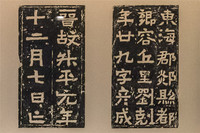 東海郡郯縣都
鄉容丘里劉剋
年廿九字彦成
晉故升平元年
十二月七日亡